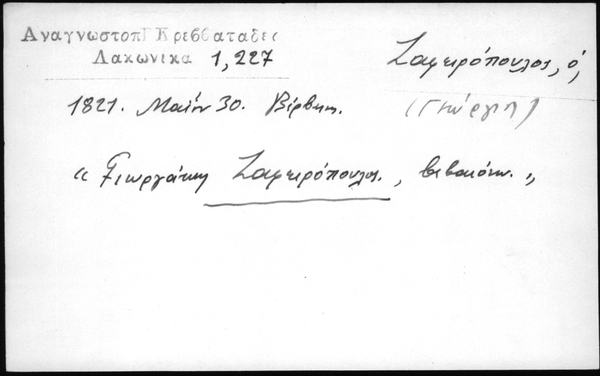 Αναγνωστοπ Κρεββαταδες
Λακωνικα 1,227
Ζαφειρόπουλος, ὁ,
(Γιώργης)
1821. Μαΐου 30. Βέρβενα.
"Γιωργάκης Ζαφειρόπουλος, βεβαιόνω."